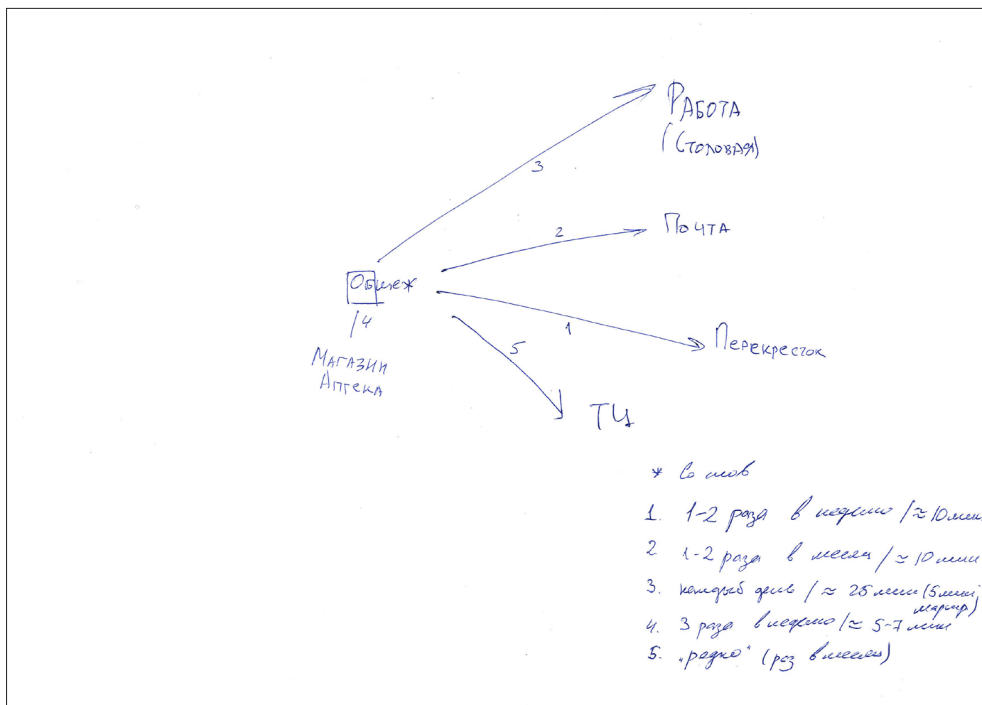 РАБОТА
(СТОЛОВАЯ)
3
2
ПОЧТА
Общеж
4
1
ПЕРЕКРЕСТОК
5
МАГАЗИН
АПТЕКА
ТЦ
* Со слов
1. 1-2 раза в неделю / ≈ 10 мин
2 1-2 раза в месяц / ≈ 10 мин
3. каждый день / ≈ 25 мин (5 мин
маршр)
4. 3 раза в неделю / ≈ 5-7 мин
5. "редко" (раз в месяц)